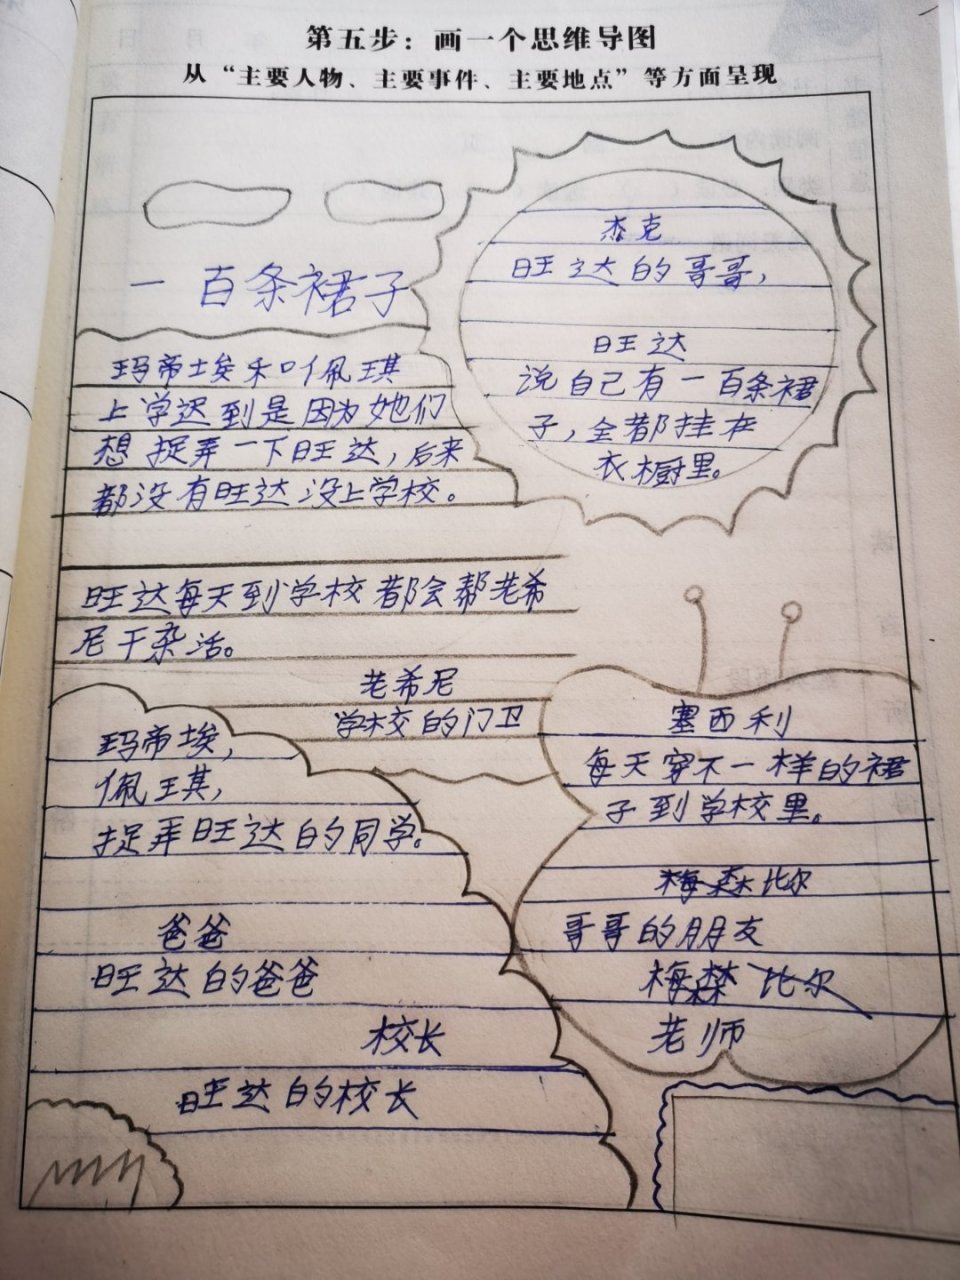 第五步：画一个思维导图
从“主要人物、主要事件、主要地点”等方面呈现
一百条裙子
杰克
旺达的哥哥，
旺达
说自己有一百条裙
子，全都挂在
衣橱里。
玛帝埃和叶佩琪
上学迟到是因为她们
想捉弄一下旺达，后来
都没有旺达没上学校。
旺达每天到学校都会帮老希
尼干杂活。
老希尼
学校的门卫
玛帝埃，
佩琪，
捉弄旺达的同学。
爸爸
旺达的爸爸
校长
旺达的校长
塞西利
每天穿不一样的裙
子到学校里。
梅森比尔
哥哥的朋友
梅森 比尔
老师